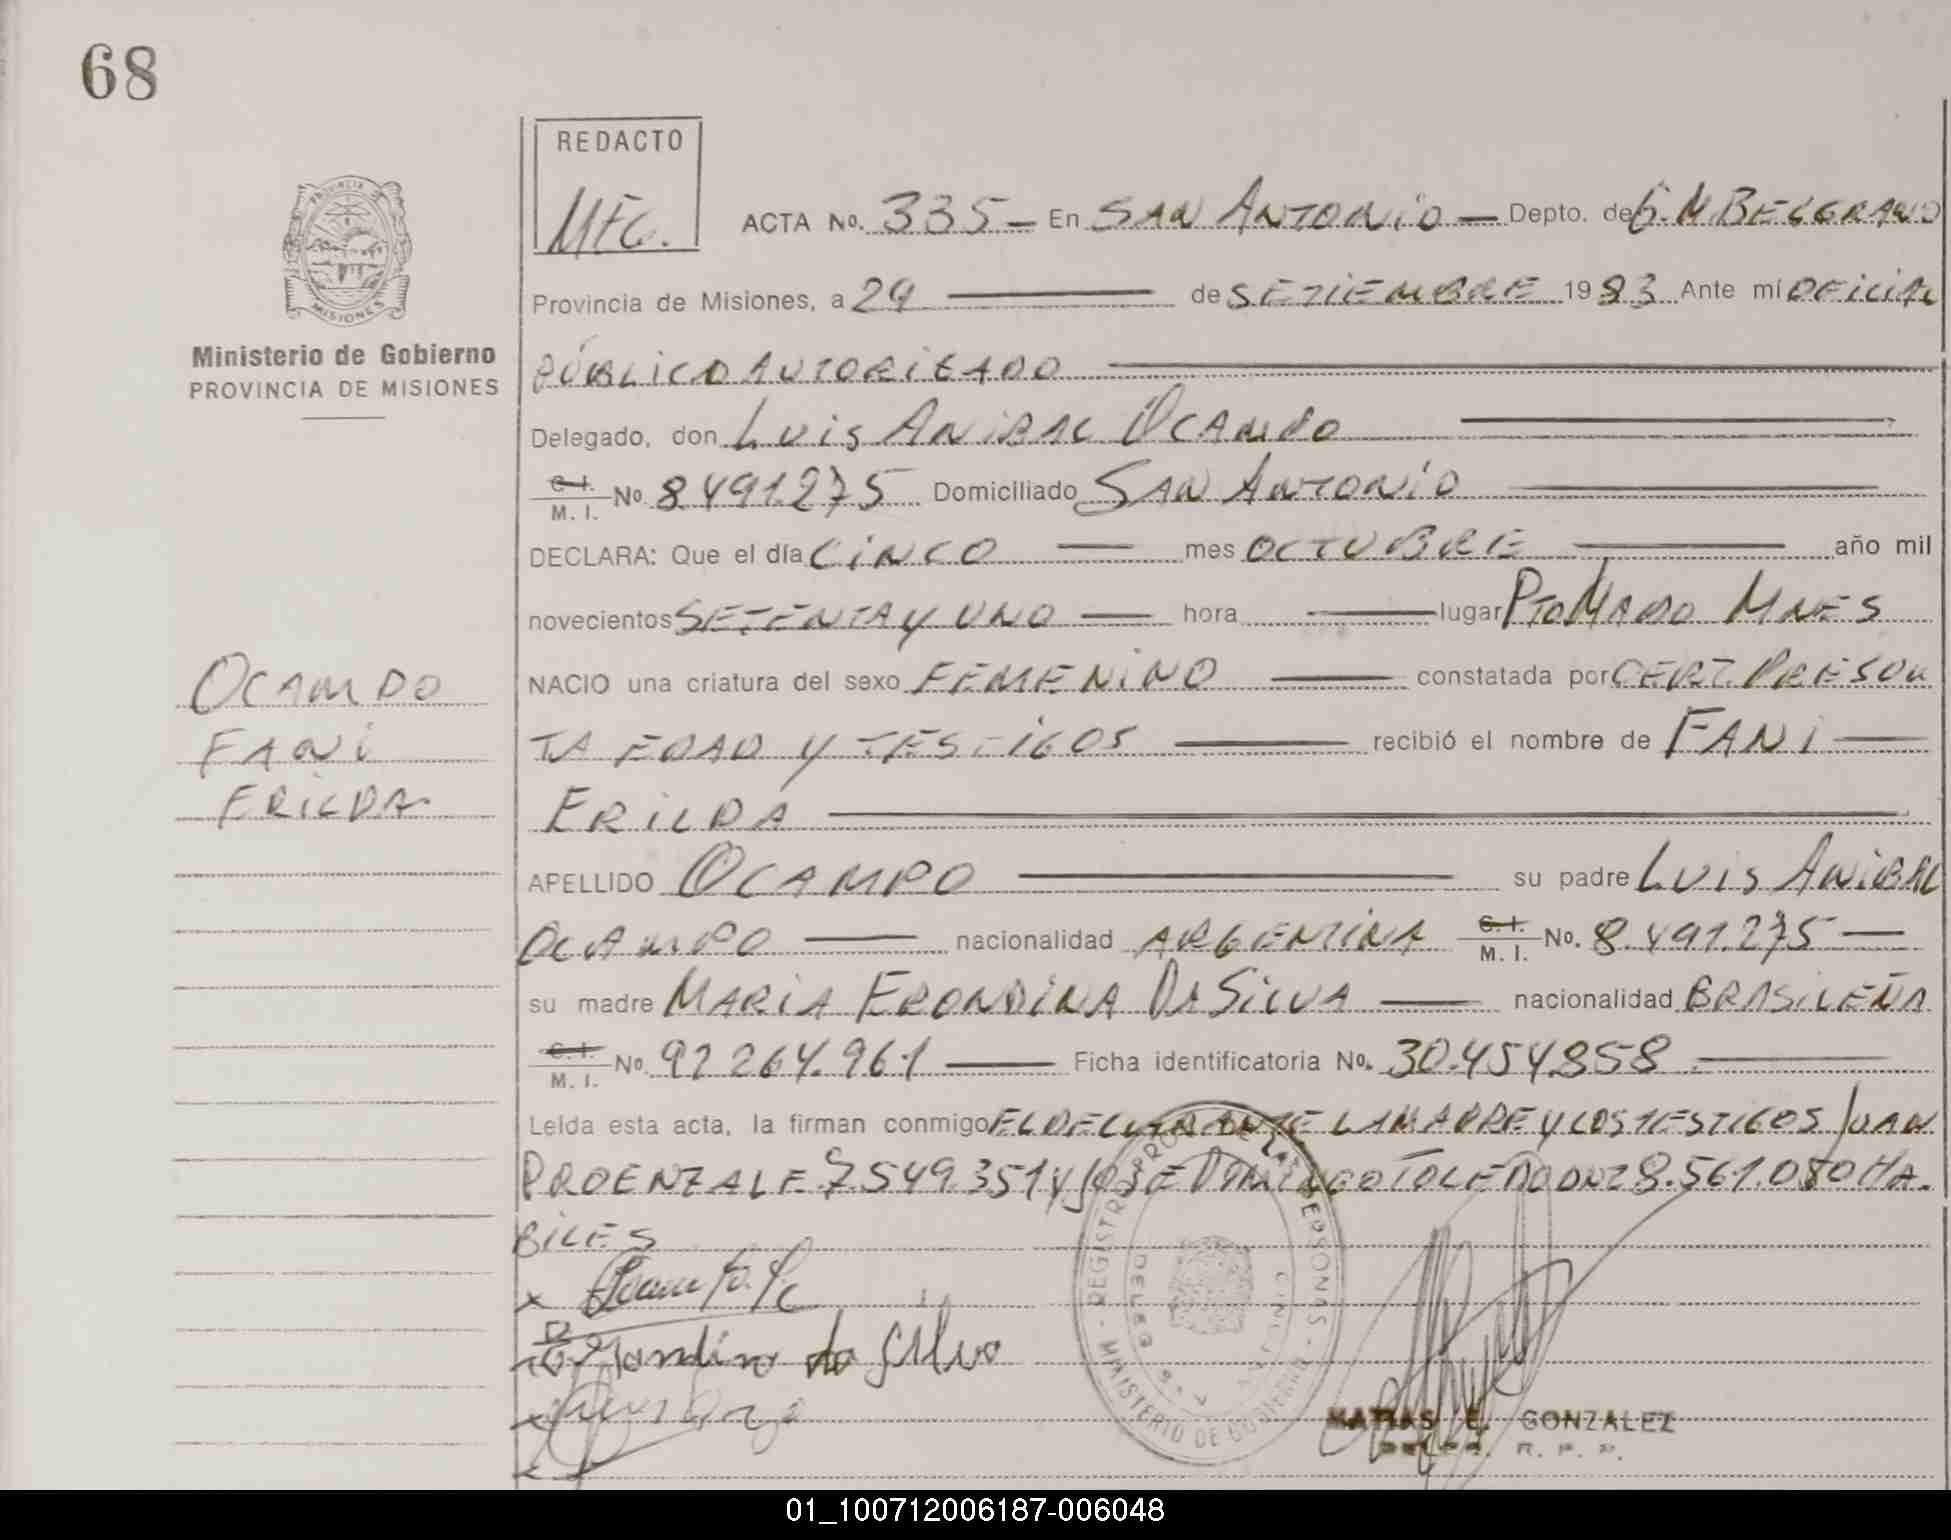 68
REDACTO
MFG.
PROVINCIA DE
MISIONES
Ministerio de Gobierno
PROVINCIA DE MISIONES
ACTA No. 335 — En SAN ANTONIO — Depto. de G. M BELGRANO
Provincia de Misiones, a 29 — de SETIEMBRE 1983 Ante mí OFICIAL
PÚBLICO AUTORIZADO
Delegado, don LUIS ANIBAL OCAMPO
C. I.
M. I. No 8.491.275 Domiciliado SAN ANTONIO
DECLARA: Que el día CINCO — mes OCTUBRE — año mil
novecientos SETENTA Y UNO — hora — lugar PTO MADO MNES
NACIO una criatura del sexo FEMENINO — constatada por CERT. PRESUN
TA EDAD Y TESTIGOS — recibió el nombre de FANI —
ERILDA
APELLIDO OCAMPO — su padre LUIS ANIBAL
OCAMPO — nacionalidad ARGENTINA C. I.
M. I. No. 8.491.275 —
su madre MARIA ERONDINA DA SILVA — nacionalidad BRASILEÑA
C. I.
M. I. No 92 264.961 — Ficha identificatoria No. 30.454.858 —
Leída esta acta, la firman conmigo EL DECLARANTE LA MADRE Y LOS TESTIGOS JUAN
PROENZA LE 7.549.351 Y JOSE DOMINGO TOLEDO DNI 8.561.080 HA.
BILES
OCAMPO
FANI
ERILDA
da Silva
REGISTRO PROV. DE LAS PERSONAS
MINISTERIO DE GOBIERNO
MATIAS E. GONZALEZ
R. P. P.
01_100712006187-006048